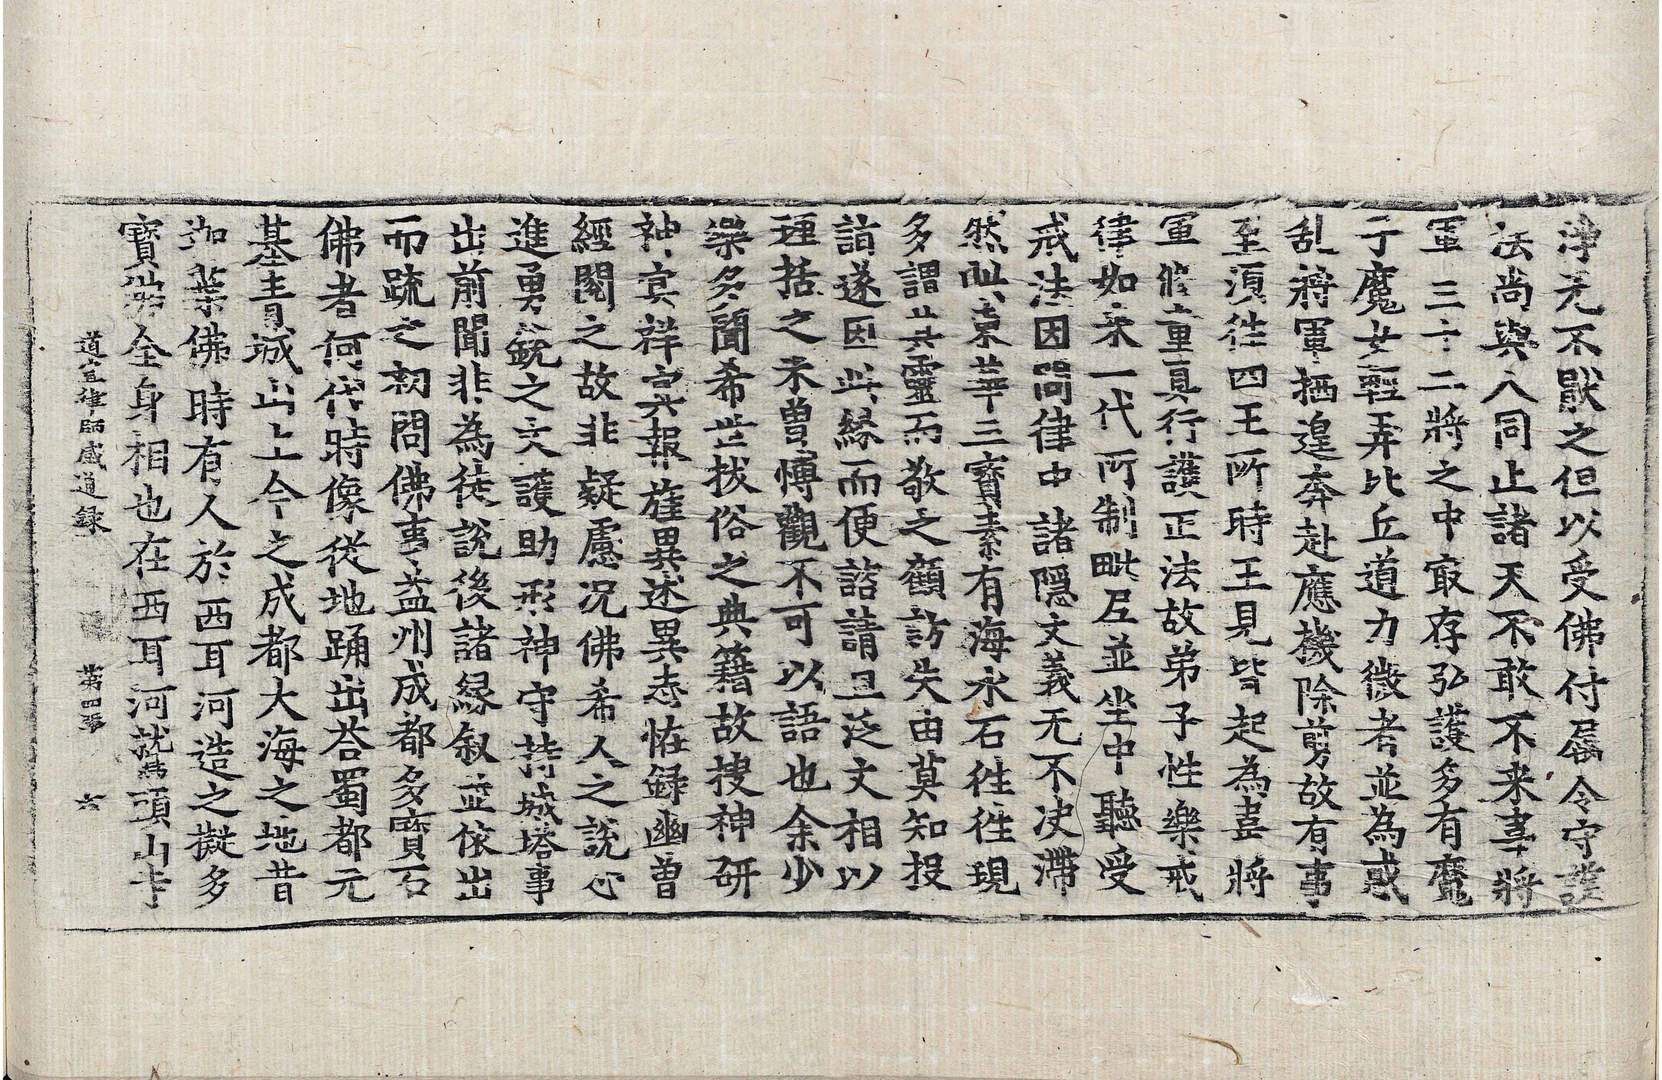 淨无不猒之但以受佛付屬令守護
法尚與人同止諸天不敢不来韋將
軍三十二將之中㝡存弘護多有魔
子魔女輕弄比丘道力微者並為惑
乱將軍栖遑奔赴應機除剪故有事
至須徃四王所時王見皆起為韋將
軍修童真行護正法故弟子性樂戒
律如来一代所制毗尼並坐中聽受
戒法因問律中諸隱文義无不决滯
然此東華三寶素有海水石徃徃現
多謂其靈而敬之顧訪失由莫知投
詣遂因此緣而便諮請且泛文相以
理括之未曽博觀不可以語也余少
樂多聞希世拔俗之典籍故搜神研
神冥祥冥報旌異述異志恠錄幽曽
經閱之故非疑慮況佛希人之說心
進勇銳之文護助形神守持城塔事
出前聞非為徒說後諸緣叙並依出
而疏之初問佛事益州成都多寶石
佛者何代時像從地踊出荅蜀都元
基青城山上今之成都大海之地昔
迦葉佛時有人於西耳河造之擬多
寶佛全身相也在西耳河鷲頭山寺
道宣律師感通録 苐四張 六